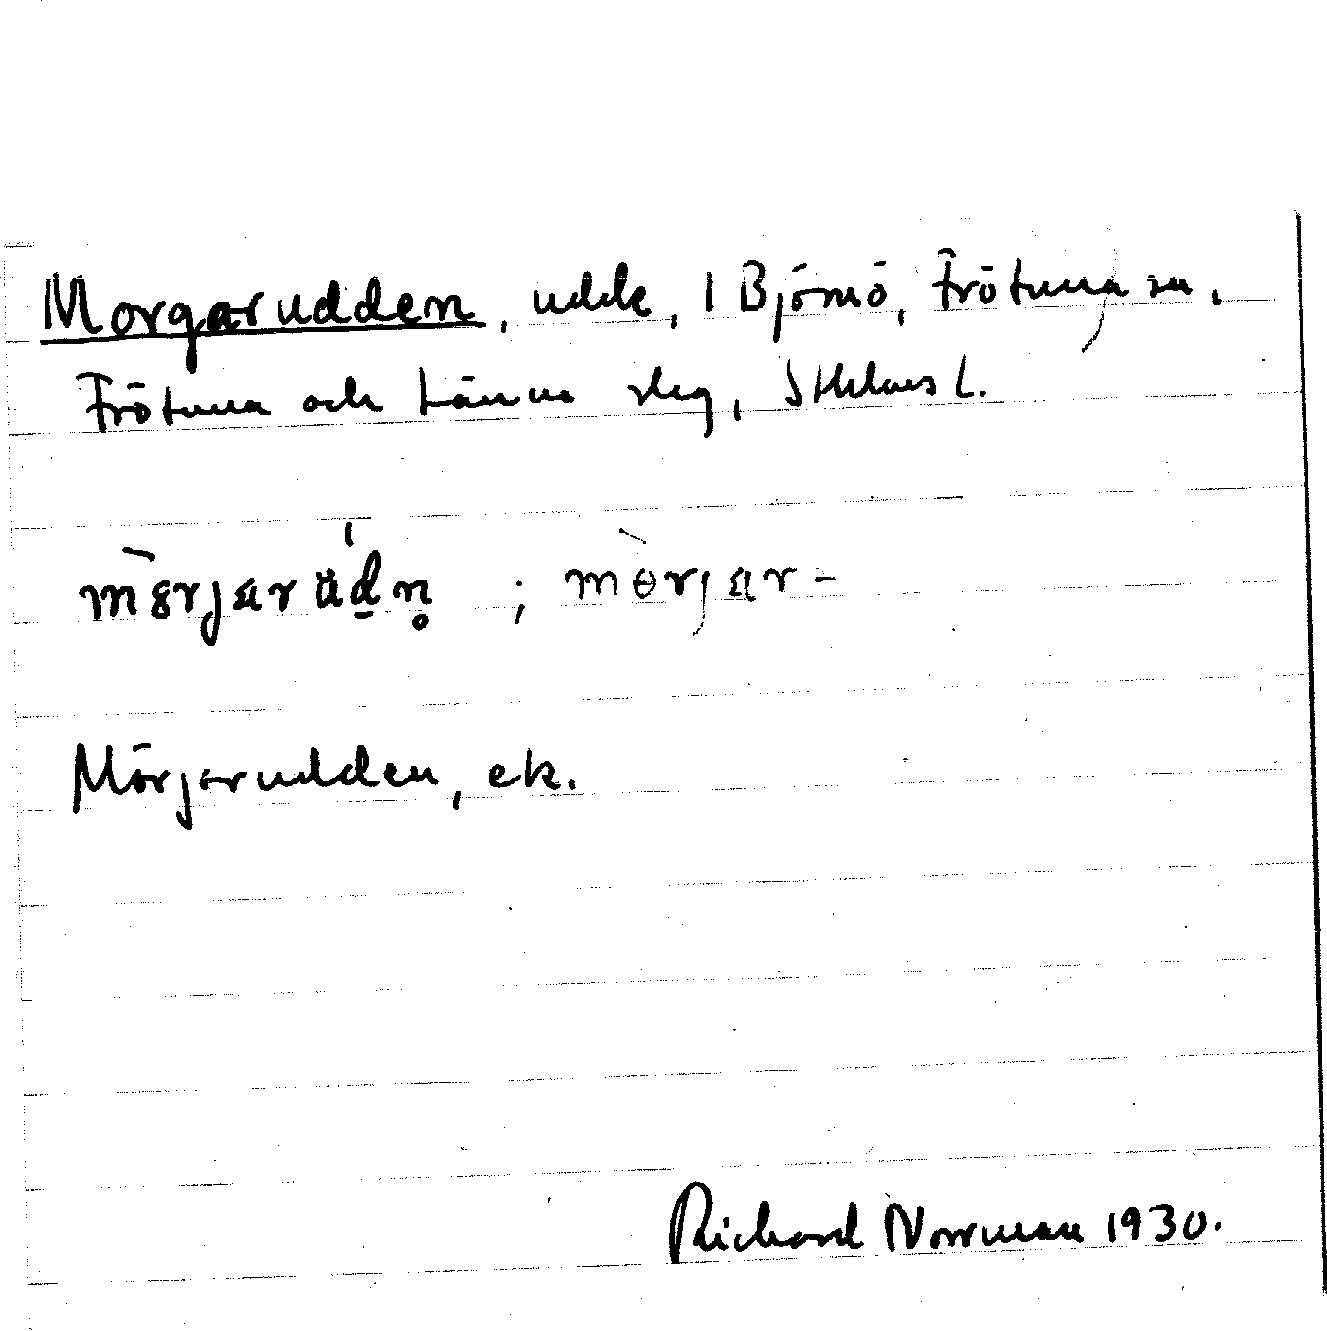 Morgarudden, udde, 1 Björnö, Frötuna sn,
Frötuna och Länna slg, Sthlms l.
mörjarúdn ; mòrjar-
Mörjarudden, ek.
Richard Norrman 1930.